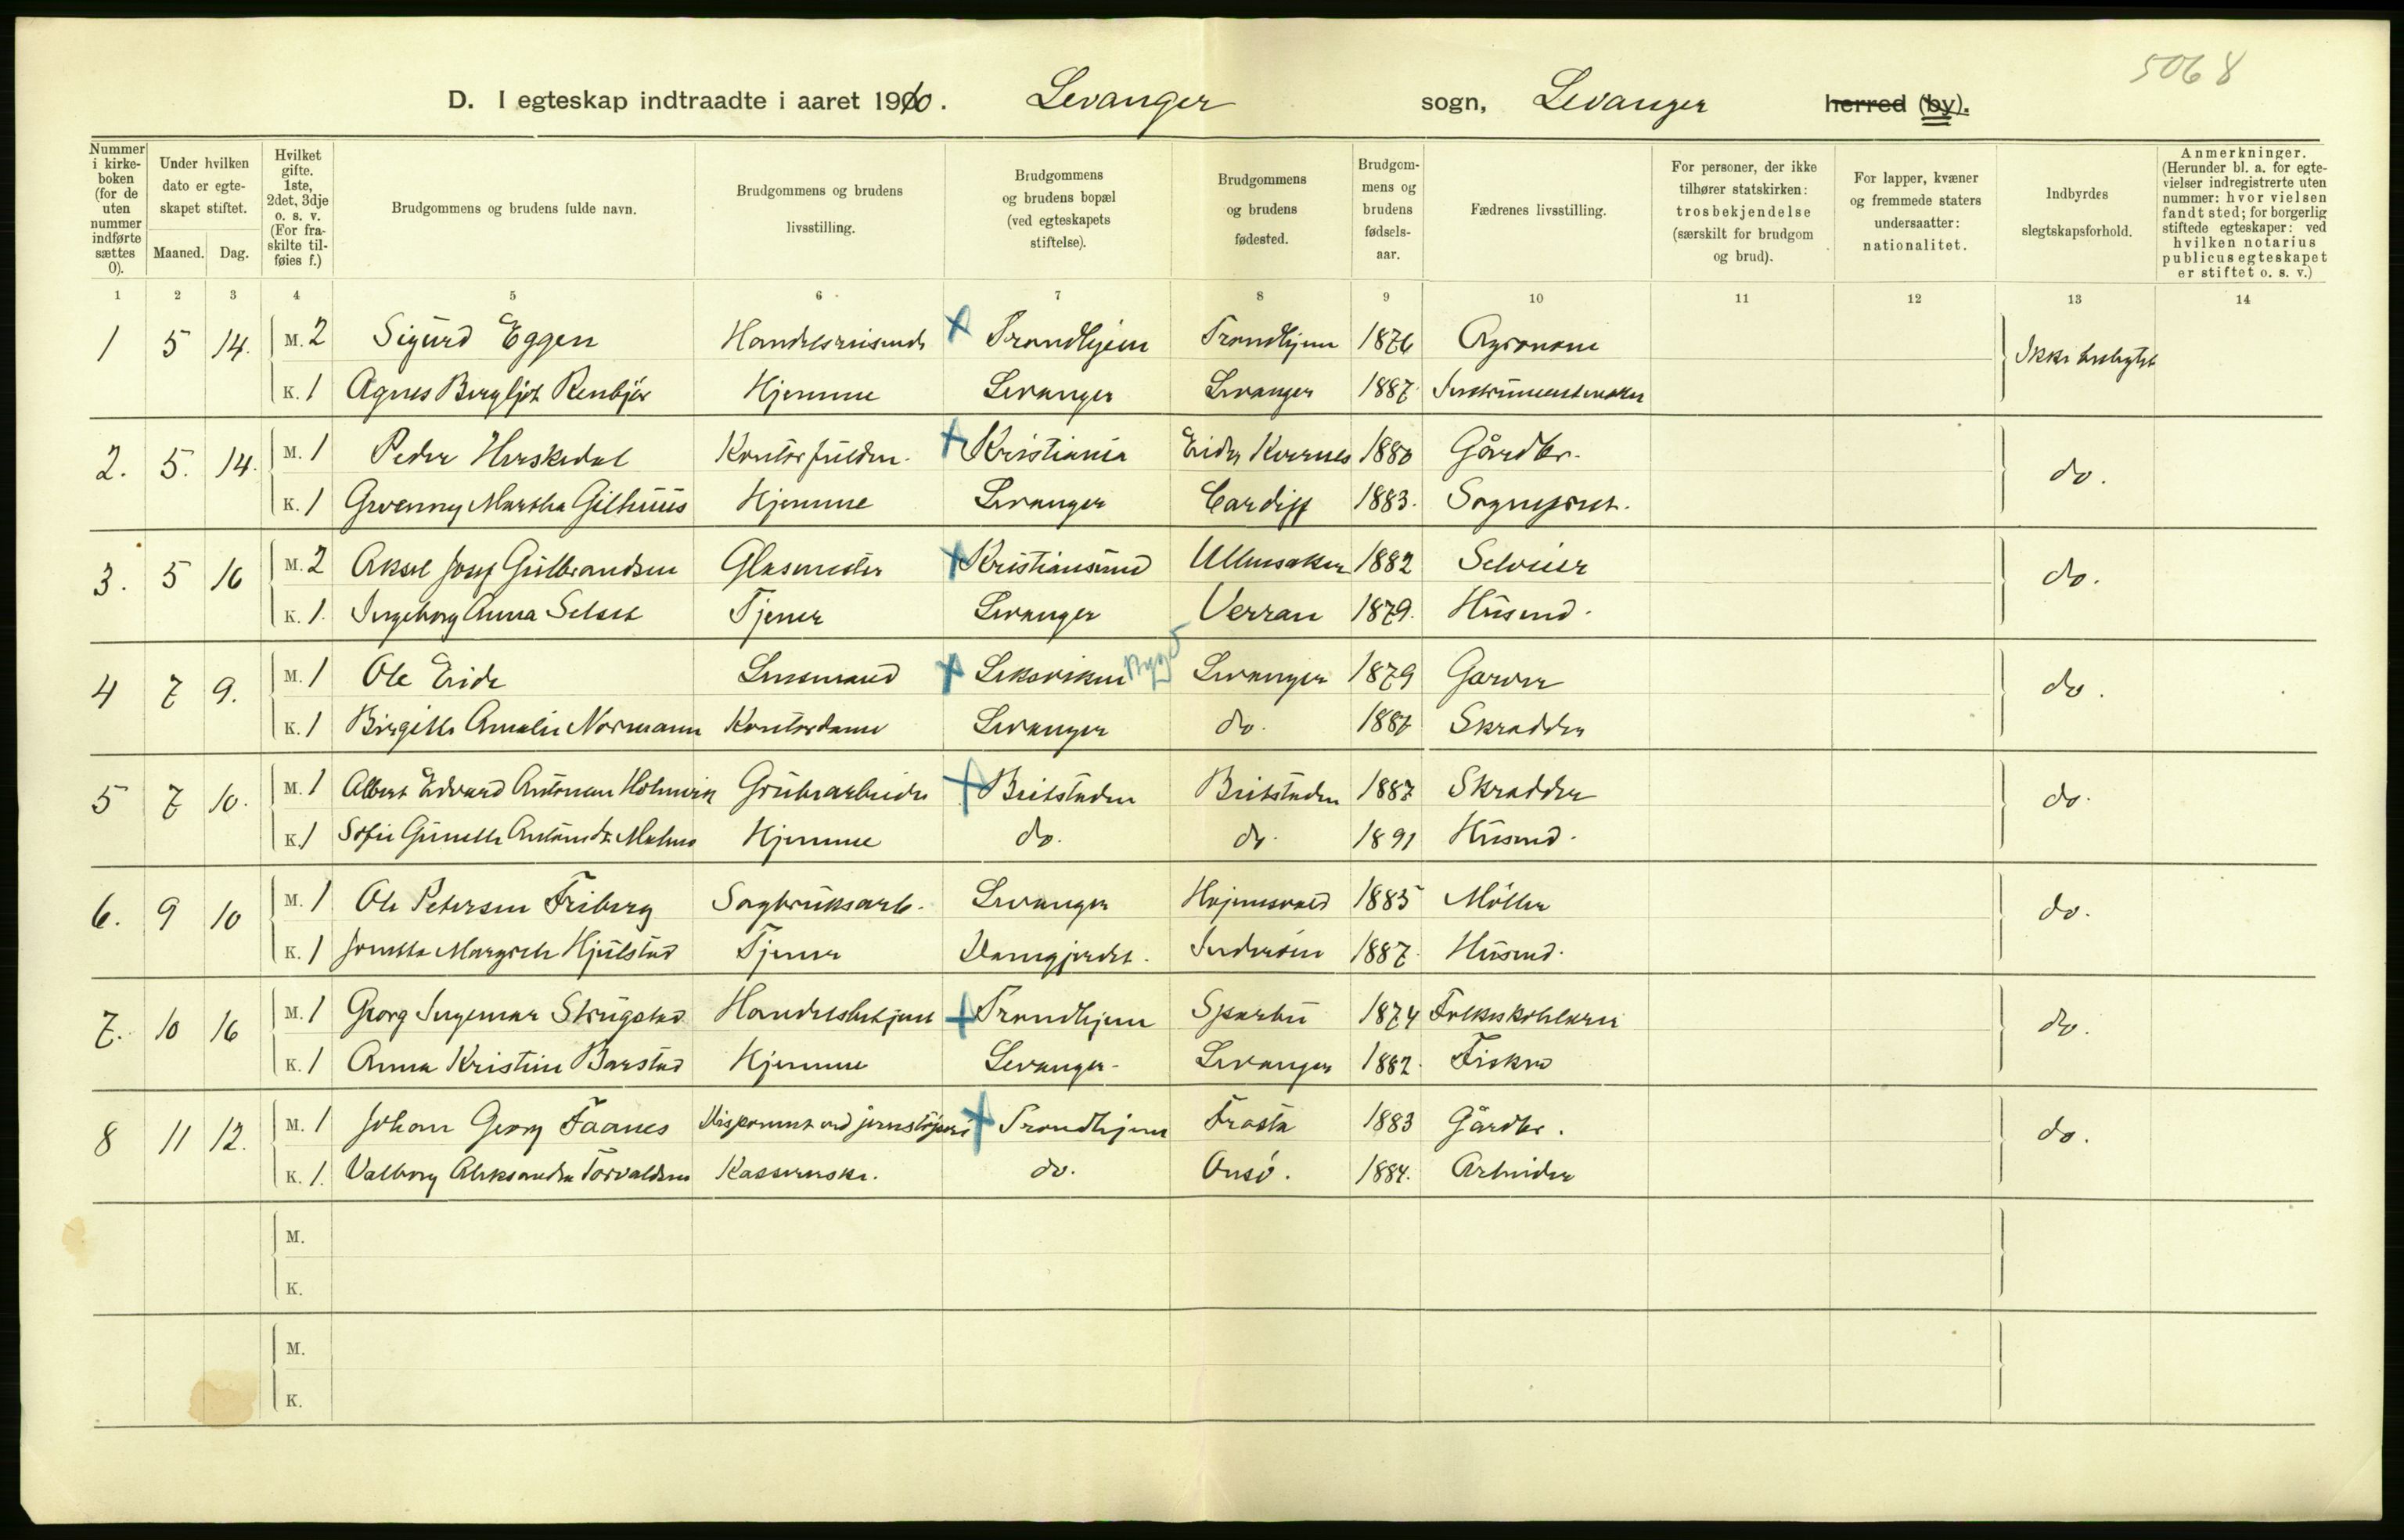 5068
D. I egteskap indtraadte i aaret 1910. Levanger sogn, Levanger herred (by).
Nummer i kirke-boken (for de uten nummer indførte sættes 0).
Under hvilken dato er egte-skapet stiftet.
Maaned. Dag.
Hvilket gifte. 1ste, 2det, 3dje o. s. v. (For fra-skilte til-føies f.)
Brudgommens og brudens fulde navn.
Brudgommens og brudens livsstilling.
Brudgommens og brudens bopæl (ved egteskapets stiftelse).
Brudgommens og brudens fødested.
Brudgom-mens og brudens fødsels-aar.
Fædrenes livsstilling.
For personer, der ikke tilhører statskirken: trosbekjendelse (særskilt for brudgom og brud).
For lapper, kvæner og fremmede staters undersaatter: nationalitet.
Indbyrdes slegtskapsforhold.
Anmerkninger. (Herunder bl. a. for egte-vielser indregistrerte uten nummer: hvor vielsen fandt sted; for borgerlig stiftede egteskaper: ved hvilken notarius publicus egteskapet er stiftet o. s. v.)
1 2 3 4 5 6 7 8 9 10 11 12 13 14
1 5 14. M. 2 Sigurd Eggen Handelsreisende Trondhjem Trondhjem 1876 Agronom Ikke beslegtet
K. 1 Agnes Bergljot Renbjør Hjemme Levanger Levanger 1887. Instrumentmaker
2. 5. 14. M. 1 Peder Herskedal Kristiania Eide Kvernes 1880 Gårdbr. do.
K. 1 Gwenny Martha Gilhuus Hjemme Levanger Cardiff 1883. Sogneprest.
3. 5 16 M. 2 Aksel Josef Gulbrandsen Glasmester Kristiansund Ullensaker 1882 Selveier do.
K. 1. Ingeborg Anna Selset Tjener Levanger Verran 1879. Husmd.
4 7 9. M. 1 Ole Eide Lensmand Leksviken Bygd Levanger 1879 Garver do.
K. 1 Birgitte Amalie Normann Kontordame Levanger do. 1887 Skradder
5 7 10. M. 1 Albert Edvard Antonsen Holmvik Grubearbeider Beitstaden Beitstaden 1887 Skradder do.
K. 1 Sofie Gunelle Malmo Hjemme do. do. 1891 Husmd.
6. 9 10 M. 1 Ole Petersen Friberg Sagbruksarb. Levanger 1885 Møller do.
K. 1 Jonetta Margrete Hjulstad Tjener Inderøen 1887. Husmd.
7. 10 16 M. 1 Georg Ingemar Skrugstad Handelsbetjent Trondhjem Sparbu 1874 Folkeskolelærer do.
K. 1 Anna Kristine Barstad Hjemme Levanger Levanger 1882. Fisker
8 11 12. M. 1 Johan Georg Faanes Disponent ved Trondhjem Frosta 1883 Gårdbr. do.
K. 1. Valborg Aleksandra Torvaldsen Kassererske. do. Onsø. 1884. Arbeider
M.
K.
M.
K.